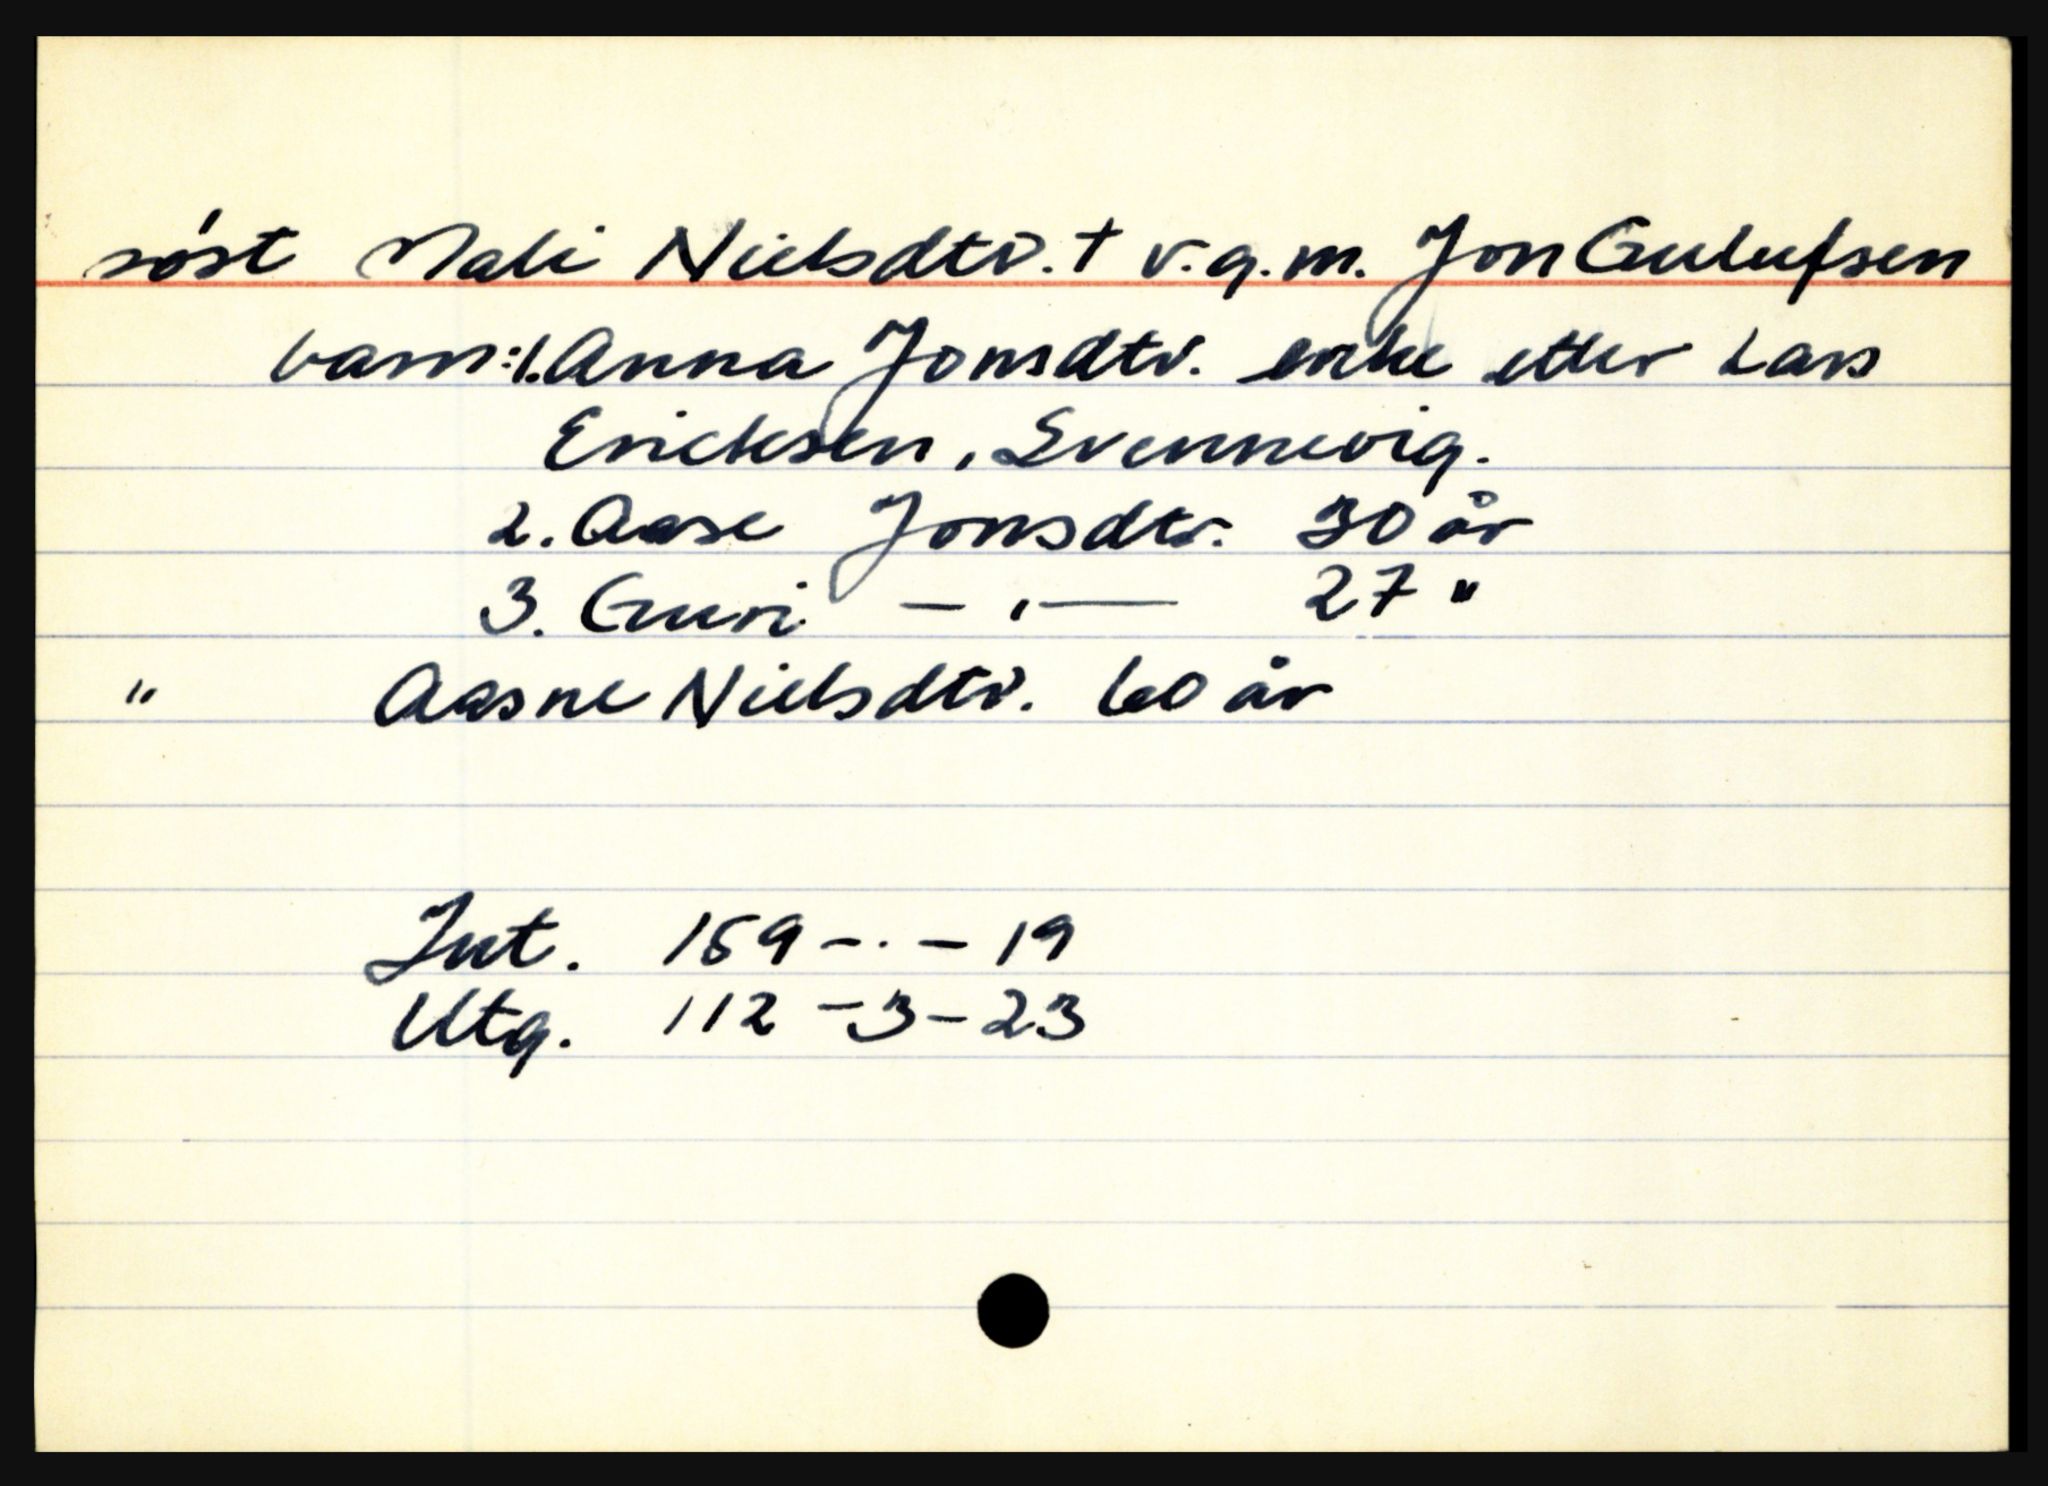 søst Mali Nielsdtr. † v.g.m. Jon Gulufsen
barn: 1. Anna Jonsdtr. enke etter Lars
Ericksen, Svennevig.
2. Aase Jonsdtr. 30 år
3. Guri — " — 27 "
" Aasne Nielsdtr. 60 år
Int. 159 - . - 19
Utg. 112 - 3 - 23